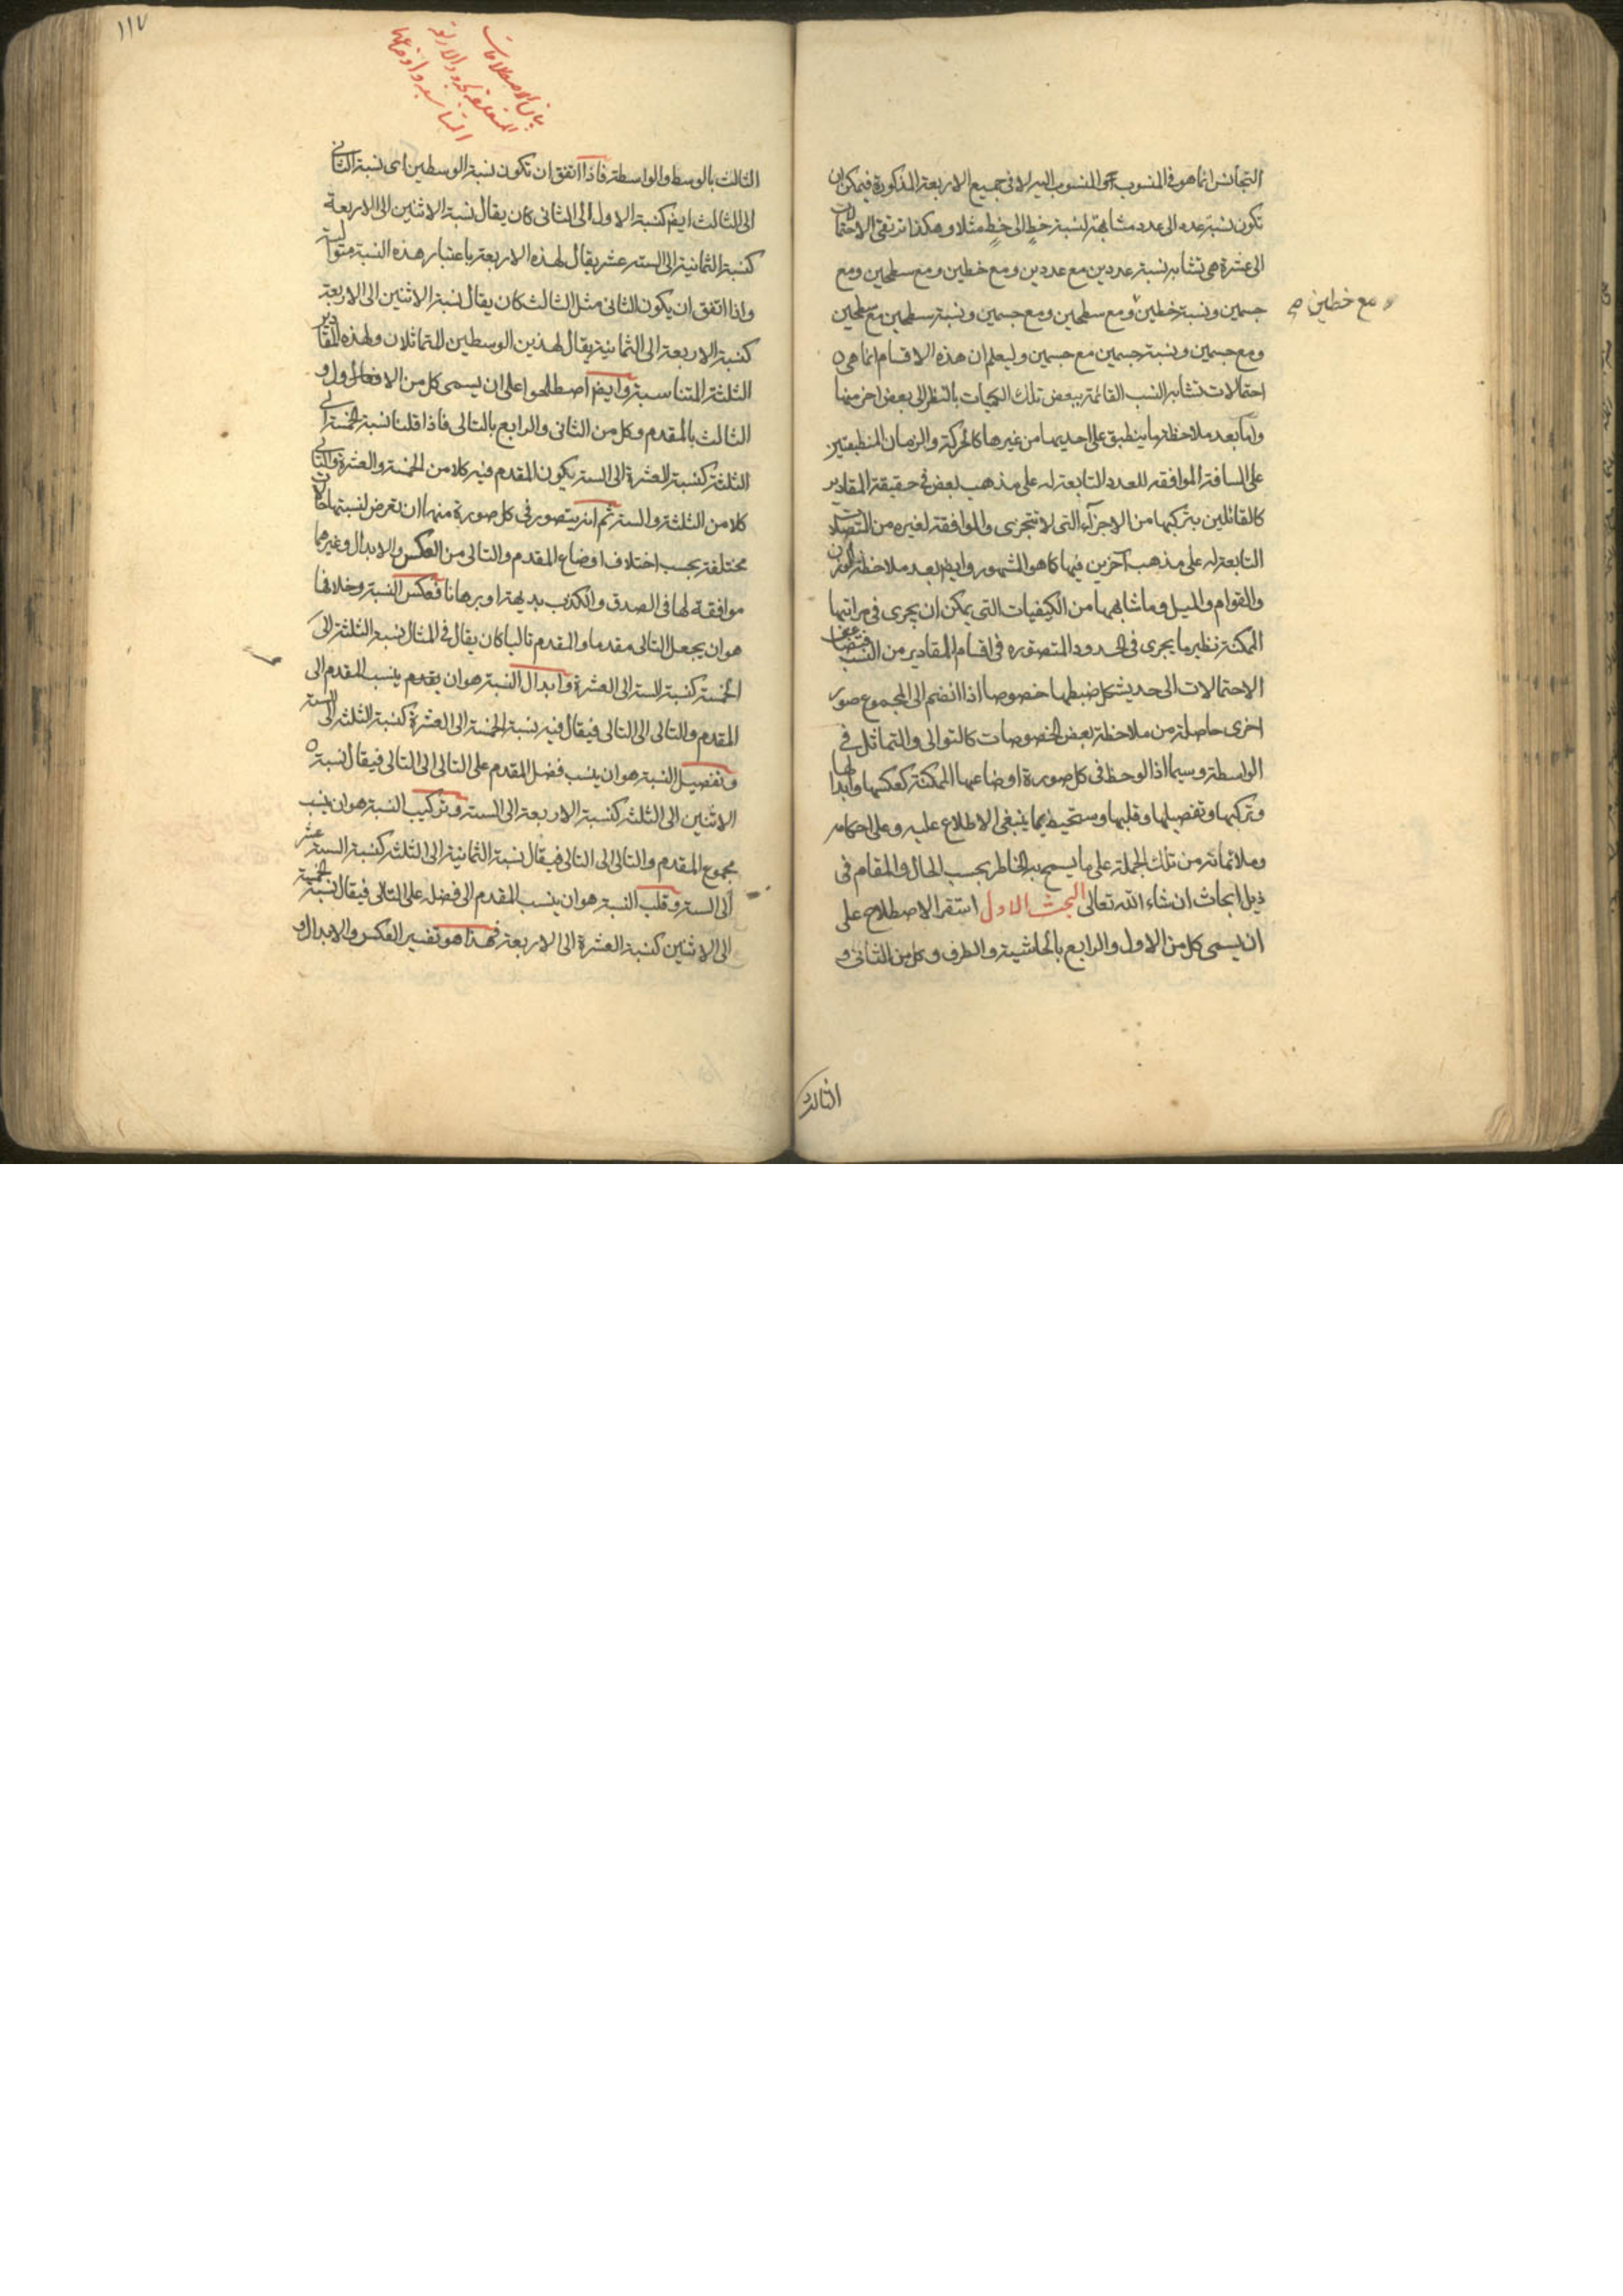 التجانس انما هو فى المنسوب والمنسوب اليه لا فى جميع الاربعة المذكورة فيمكن ان
تكون نسبة عدد الى عدد مشابهة لنسبة خط الى خط مثلا وهكذا ترتقى الاحتمالات
الى عشرة هى تشابه نسبة عددين مع عددين ومع خطين ومع سطحين ومع
جسمين ونسبة خطين ومع سطحين ومع جسمين ونسبة سطحين مع سطحين
مع خطين صح
ومع جسمين ونسبة جسمين مع جسمين وليعلم ان هذه الاقسام انما هى
احتمالات تشابه النسب القائمة ببعض تلك الكميات بالنظر الى بعض اخر منها
واما بعد ملاحظة ما ينطبق على احديهما من غيرها كالحركة والزمان المنطبقين
على المسافة الموافقه للعدد التابعة له على مذهب بعض فى حقيقة المقادير
كالقائلين بتركبها من الاجزآء التى لا تتجزى والموافقة لغيره من المتصلات
التابعة له على مذهب آخرين فيها كما هو المشهور وايضا بعد ملاحظة الوزن
والقوام والميل وما شابهها من الكيفيات التى يمكن ان يجرى فى مراتبها
الممكنة نظير ما يجرى فى الحدود المتصوره فى اقسام المقادير من النسب فيتضاعف
الاحتمالات الى حد يشكل ضبطها خصوصا اذا انضم الى المجموع صور
اخرى حاصلة من ملاحظة بعض الخصوصات كالتوالى والتماثل فى
الواسطة وسيما اذا لوحظ فى كل صورة اوضاعها الممكنة كعكسها وابدالها
وتركبها وتفصيلها وقلبها وستحيط بما ينبغى الاطلاع عليه وعلى احكامه
وملائماته من تلك الجملة على ما يسمح به الخاطر بحسب الحال والمقام فى
ذيل ابحاث ان شاء الله تعالى البحث الاول استقر الاصطلاح على
ان يسمى كل من الاول والرابع بالحاشية والطرف وكل من الثانى و
الثالث
١١٧
بيان الاصطلاحات
المتعلقة بحدود الاربعة
المتناسبة واوضاعها
الثالث بالوسط والواسطة فاذا اتفق ان تكون نسبة الوسطين اى نسبة الثانى
الى الثالث ايضا كنسبة الاول الى الثانى كان يقال نسبة الاثنين الى الاربعة
كنسبة الثمانية الى الستة عشر يقال لهذه الاربعة باعتبار هذه النسبة متوالية
واذا اتفق ان يكون الثانى مثل الثالث كان يقال نسبة الاثنين الى الاربعة
كنسبة الاربعة الى الثمانية يقال لهذين الوسطين المتماثلان ولهذه المقادير
الثلثة المتناسبة وايضا اصطلحوا على ان يسمى كل من الاول و
الثالث بالمقدم وكل من الثانى والرابع بالتالى فاذا قلنا نسبة الخمسة الى
الثلثة كنسبة العشرة الى الستة يكون المقدم فيه كلا من الخمسة والعشرة والتالى
كلا من الثلثة والستة ثم انه يتصور فى كل صورة منها ان تعرض لنسبتها حالات
مختلفة بحسب اختلاف اوضاع المقدم والتالى من العكس والابدال وغيرهما
موافقة لها فى الصدق والكذب بديهة او برهانا فعكس النسبة وخلافها
هو ان يجعل التالى مقدما والمقدم تاليا كان يقال فى المثال نسبة الثلثة الى
الخمسة كنسبة الستة الى العشرة وابدال النسبة هو ان يقدم ينسب المقدم الى
المقدم والتالى الى التالى فيقال فيه نسبة الخمسة الى العشرة كنسبة الثلثة الى الستة
وتفصيل النسبة هو ان ينسب فضل المقدم على التالى الى التالى فيقال نسبة
الاثنين الى الثلثة كنسبة الاربعة الى الستة وتركيب النسبة هو ان ينسب
مجموع المقدم والتالى الى التالى فيقال نسبة الثمانية الى الثلثة كنسبة الستة عشر
الى الستة وقلب النسبة هو ان ينسب المقدم الى فضله على التالى فيقال نسبة الخمسة
الى الاثنين كنسبة العشرة الى الاربعة فهذا هو تفسير العكس والابدال و